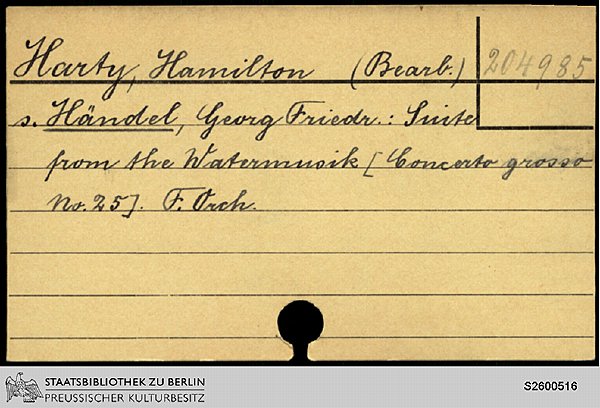 Harty, Hamilton (Bearb.) 204985
s. Händel, Georg Friedr.: Suite
from the Watermusik [Concerto grosso
No. 25]. F. Orch.
STAATSBIBLIOTHEK ZU BERLIN
PREUSSISCHER KULTURBESITZ
S2600516